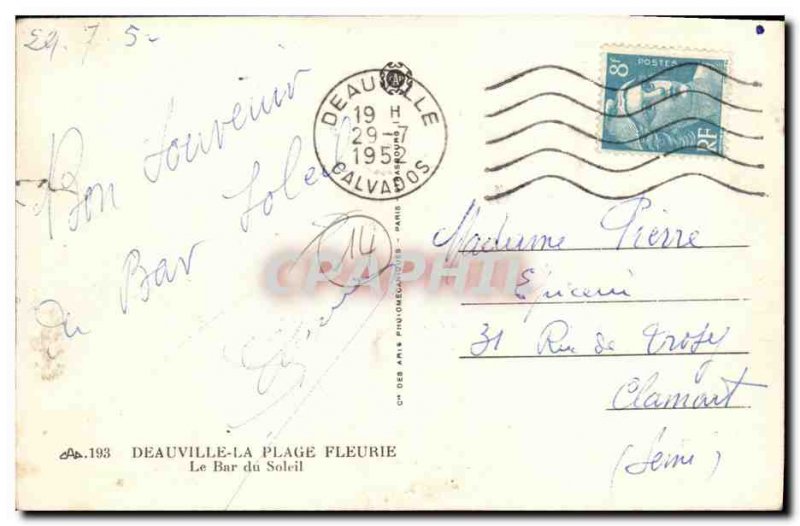 29.7.5
Bon Souvenir
du Bar Soleil
14
DEAUVILLE
19 H
29-7
1952
CALVADOS
8F
POSTES
RF
Cie DES ARTS PHOTOMECANIQUES - PARIS - STRASBOURG
CPAPHIL
Madame Pierre
Epicerie
31 Rue de Trosy
Clamart
(Seine)
CAP.193 DEAUVILLE-LA PLAGE FLEURIE
Le Bar du Soleil